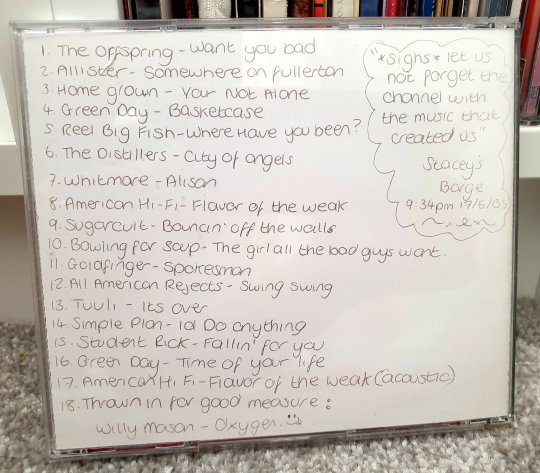 1. The Offspring - Want you bad
2. Allister - Somewhere on fullerton
3. Home grown - Your Not Alone
4. Green Day - Basketcase
5. Reel Big Fish - Where Have you been?
6. The Distillers - City of angels
7. Whitmore - Alison
8. American Hi-Fi - Flavor of the weak
9. Sugarcult - Bouncin' off the walls
10. Bowling for soup - The girl all the bad guys want.
11. Goldfinger - Spokesman
12. All American Rejects - Swing swing
13. Tuuli - Its over
14. Simple Plan - Id Do anything
15. Student Rick - Fallin' for you
16. Green Day - Time of your life
17. American Hi Fi - Flavor of the weak (acoustic)
18. Thrown in for good measure:
Willy Mason - Oxygen.
"*sighs* let us
not forget the
channel with
the music that
created us"
Stacey's
Barge
9:34pm 17/5/03